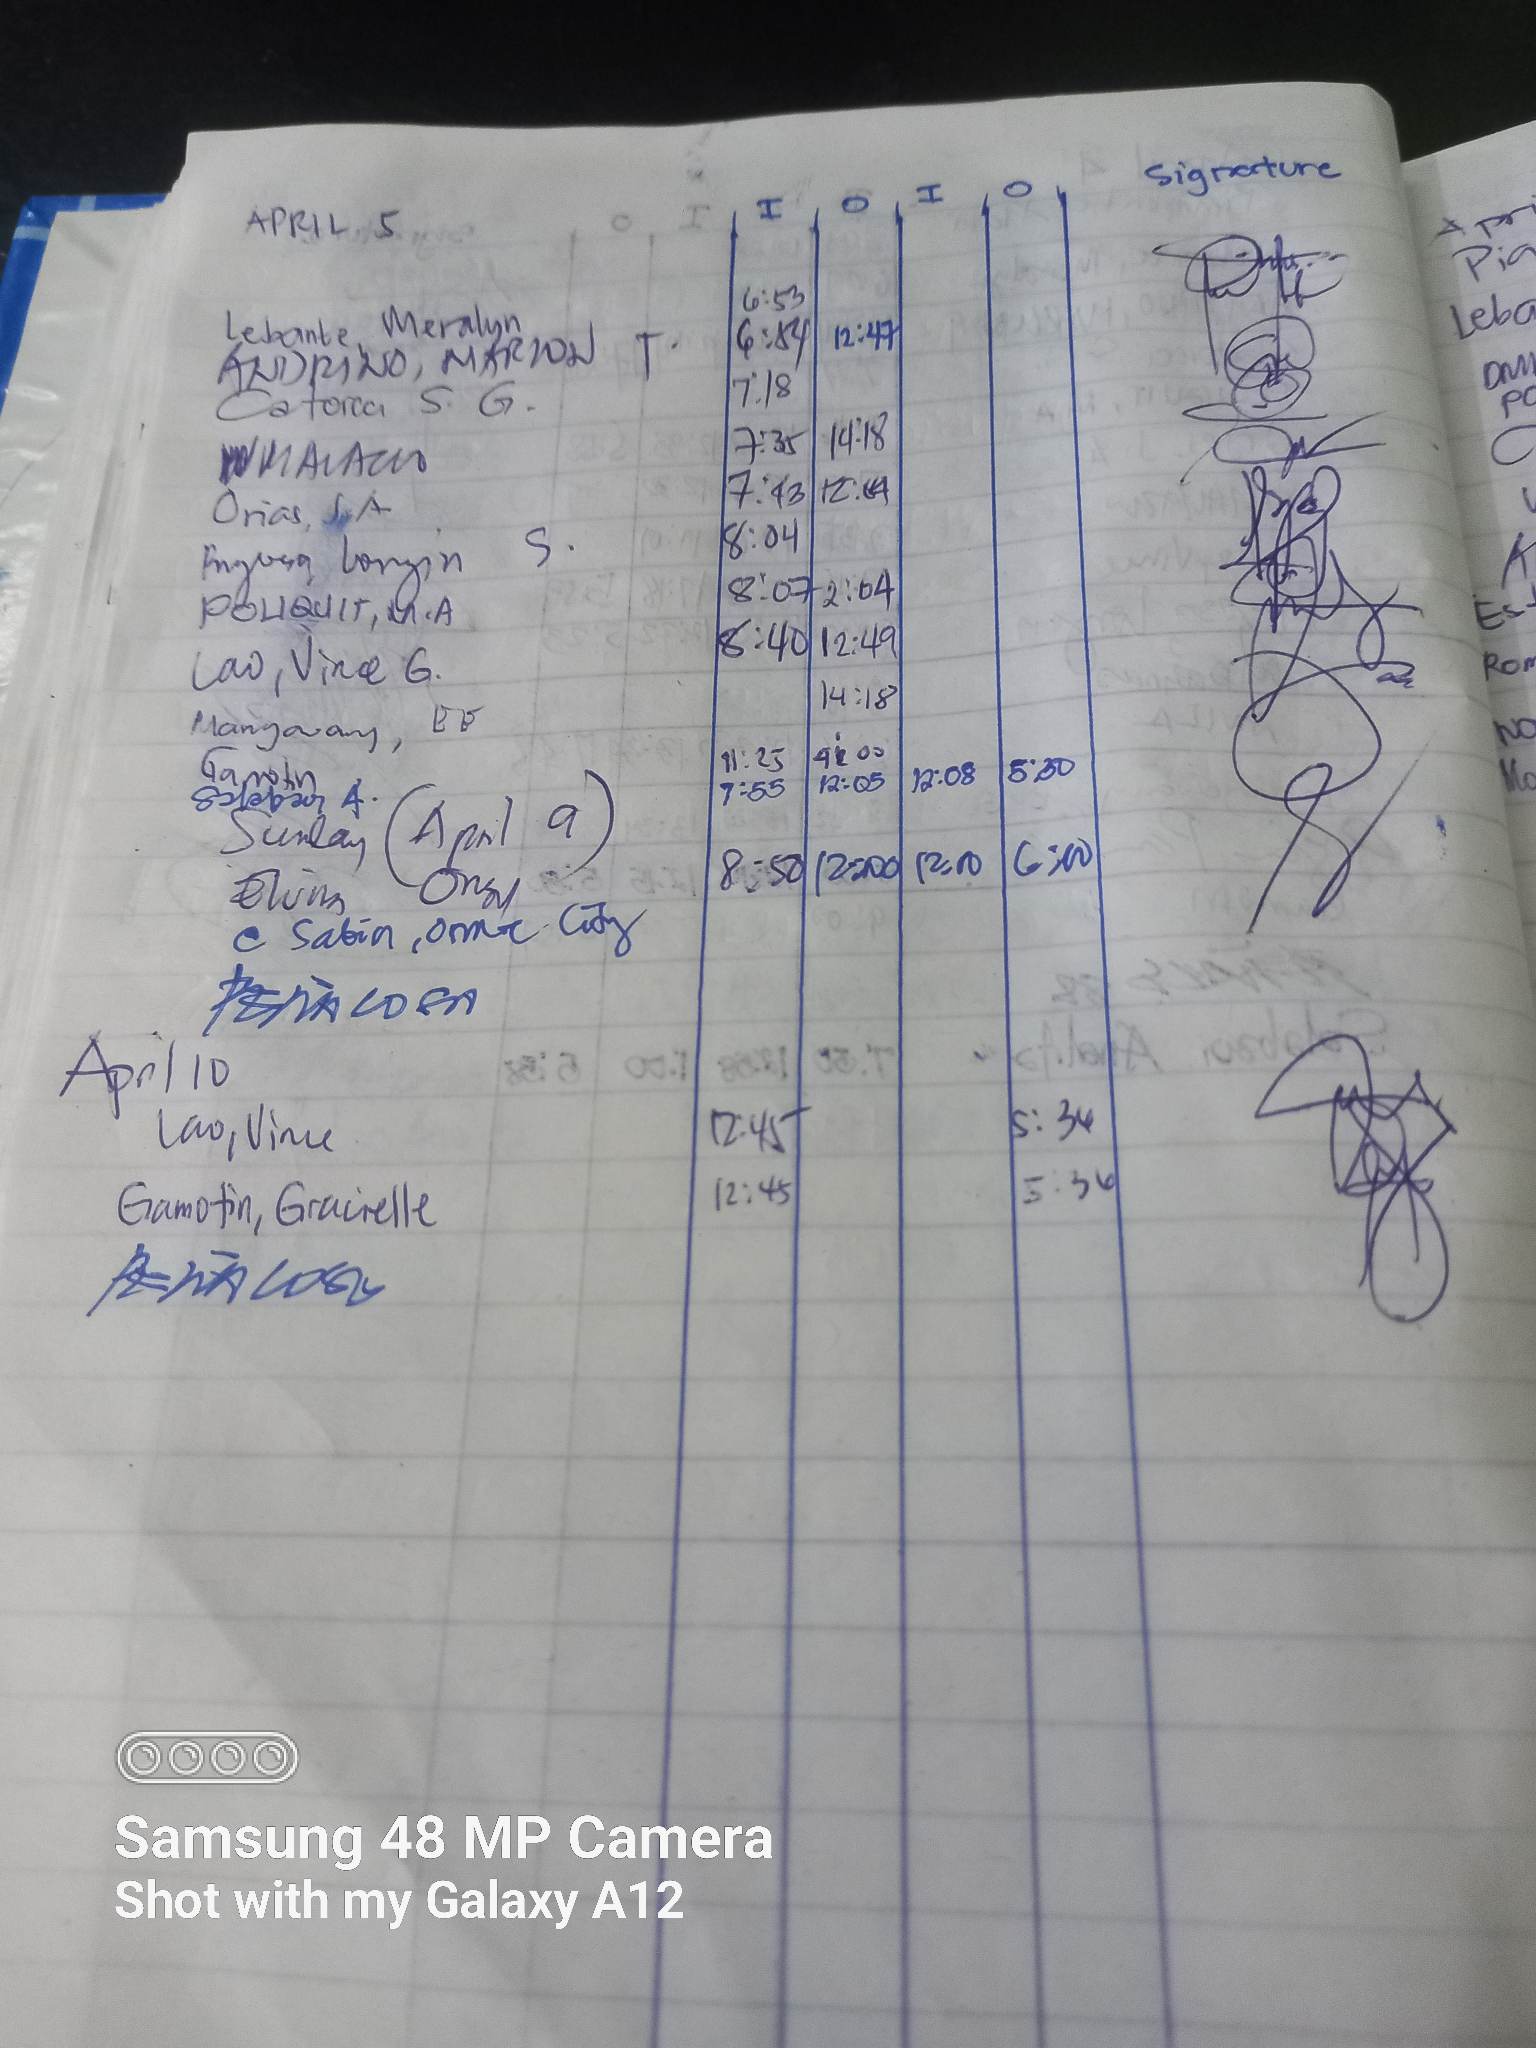 Signature
APRIL 5 I O I O
Lebante, Meralyn 6:53
ANDRINO, MARION T. 6:54 12:47
Catorce S. G. 7:18
MALACO 7:35 14:18
Orias, J.A 7:43
S. 8:04
POLIQUIT, M.A 8:07 2:04
Lao, Vince G. 8:40 12:49
Mangaway, EE 14:18
Gamotin 11:25
Salabao A. 7:55 12:05 12:08 5:30
Sunday (April 9)
8:50 12:00 12:10 6:00
@ Sabin, Ormoc City
PEÑACOSA
April 10
Lao, Vince 12:45 5:34
Gamotin, Gracielle 12:45 5:34
PEÑACOSA
Leba
Rom
Samsung 48 MP Camera
Shot with my Galaxy A12